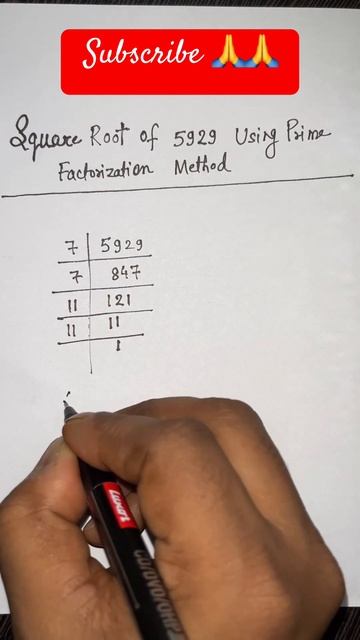 Subscribe 🙏🙏
Square Root of 5929 Using Prime
Factorization Method
7 5929
7 847
11 121
11 11
1
Luxor